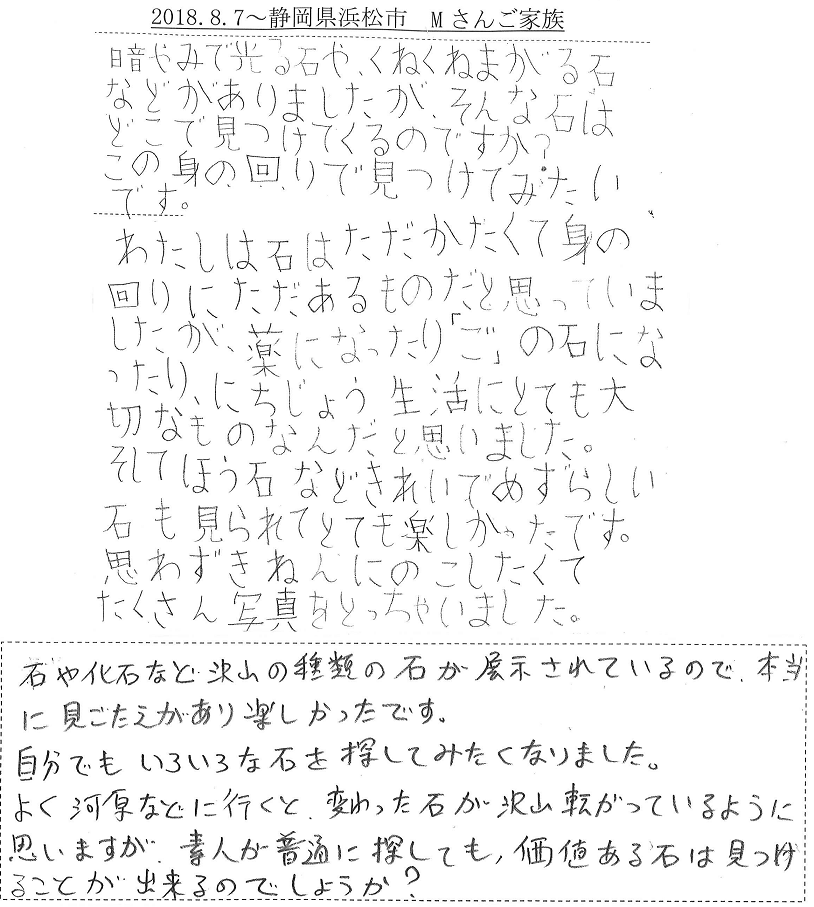 2018.8.7～静岡県浜松市　Mさんご家族
暗やみで光る石や、くねくねまがる石
などがありましたが、そんな石は
どこで見つけてくるのですか?
この身の回りで見つけてみたい
です。
わたしは石はただかたくて身の
回りにただあるものだと思っていま
したが、薬になったり「ご」の石にな
ったり、にちじょう生活にとても大
切なものなんだと思いました。
そしてほう石などきれいでめずらしい
石も見られてとても楽しかったです。
思わずきねんにのこしたくて
たくさん写真をとっちゃいました。
石や化石など沢山の種類の石が展示されているので、本当
に見ごたえがあり楽しかったです。
自分でもいろいろな石を探してみたくなりました。
よく河原などに行くと、変わった石が沢山転がっているように
思いますが、素人が普通に探しても、価値ある石は見つけ
ることが出来るのでしょうか?